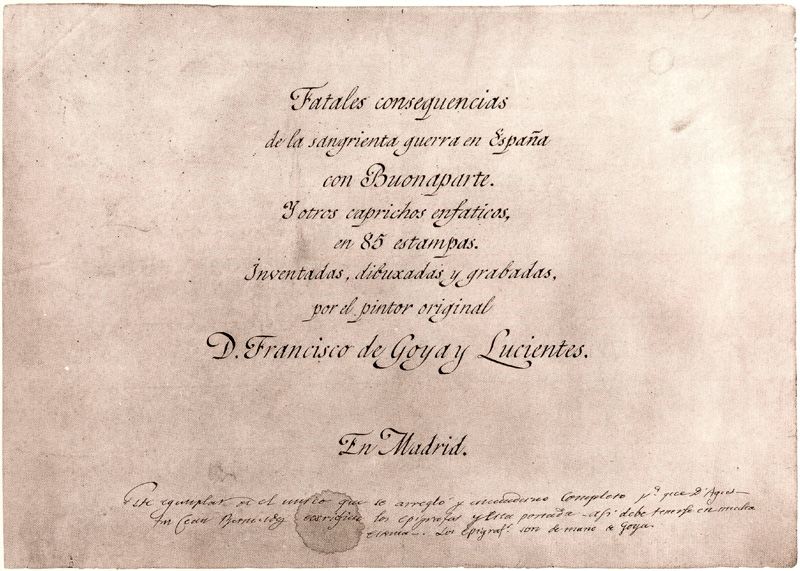 Fatales consequencias
de la sangrienta guerra en España
con Buonaparte.
Y otros caprichos enfaticos,
en 85 estampas.
Inventadas, dibuxadas y grabadas,
por el pintor original
D. Francisco de Goya y Lucientes.
En Madrid.
Este ejemplar es el unico que se arregló y encuaderno Completo pª que Dⁿ Agus-
tin Cean Bermudez los epigrafes y esta portada. Asi debe tenerse en mucha
estima. Los Epigrafˢ son de mano de Goya.